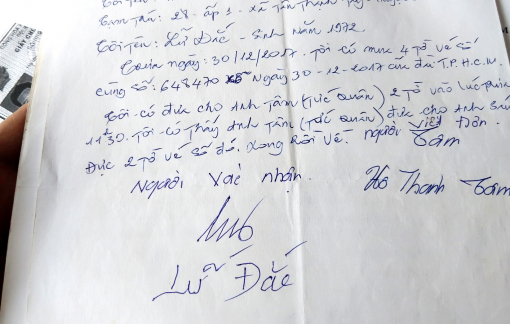 Tạm Trú: 28 - ấp 1 - xã Tân Thạnh
Tôi Tên: Lữ Đắc - Sinh Năm 1972.
ngày: 30/12/2017. Tôi có mua 4 Tờ vé số
cùng số: 648470 Ngày 30-12-2017 của đài T.P.H.C.M.
Tôi có đưa cho Anh Tâm (Tước Quân) 2 Tờ vào lúc
11h30. Tôi có Thấy Anh Tâm (Tước Quân) đưa cho Anh
Đực 2 Tờ vé số đó. Xong Rồi về. Người Viết Đơn.
Tâm
Người Xác nhận. Hồ Thanh Tâm
Lữ Đắc